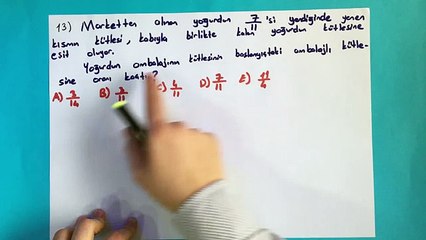 13) Marketten alınan yoğurdun 7/11 'si yendiğinde yenen
kısmın kütlesi, kabıyla birlikte kalan yoğurdun kütlesine
eşit oluyor.
Yoğurdun ambalajının kütlesinin başlangıçtaki ambalajlı kütle-
sine oranı kaçtır?
A) 3/14 B) 3/11 C) 4/11 D) 7/11 E) 11/4